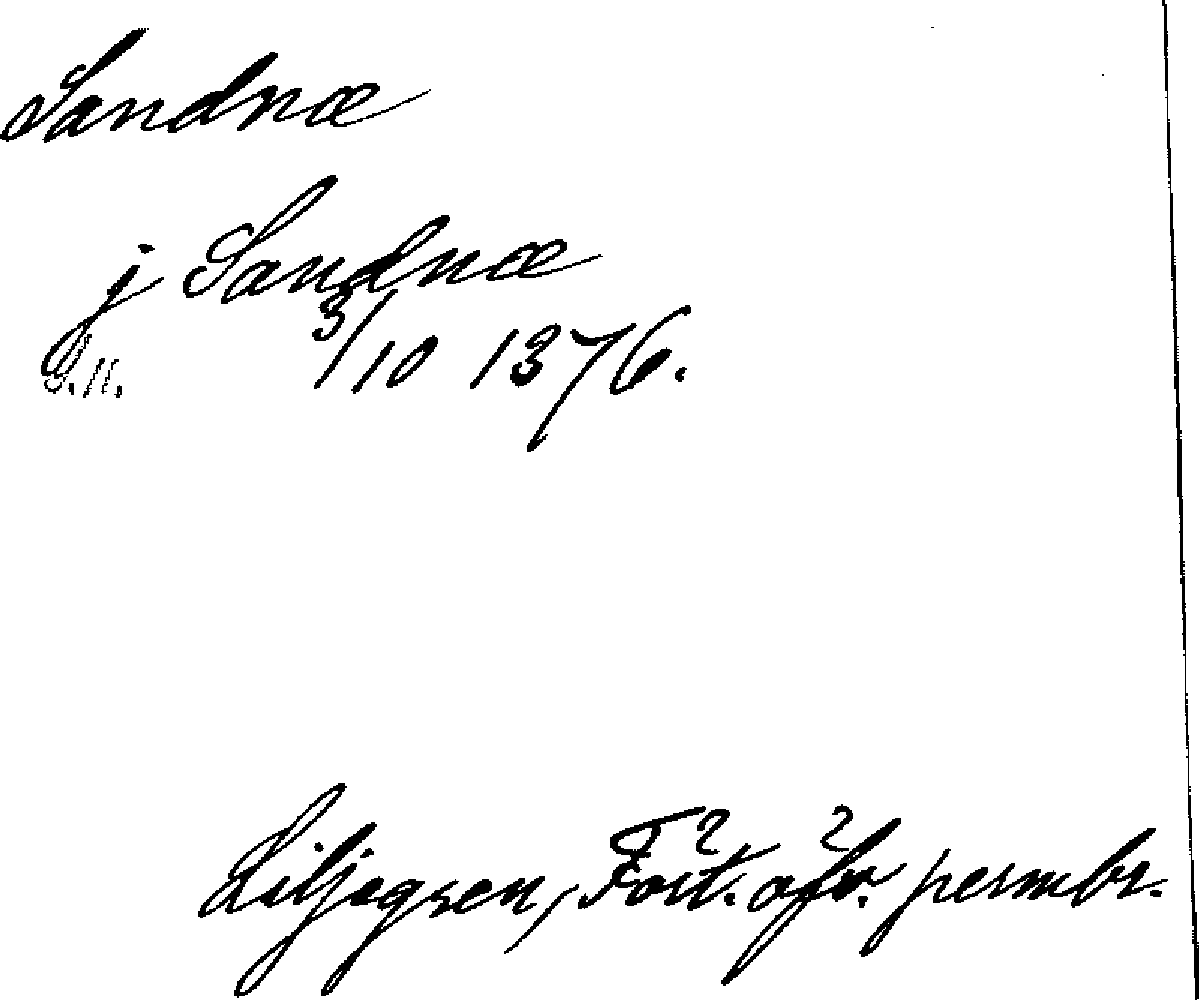 Sandnæ
j Sandnæ
3/10 1376.
Liljegren, Fört. öfv. permbr.